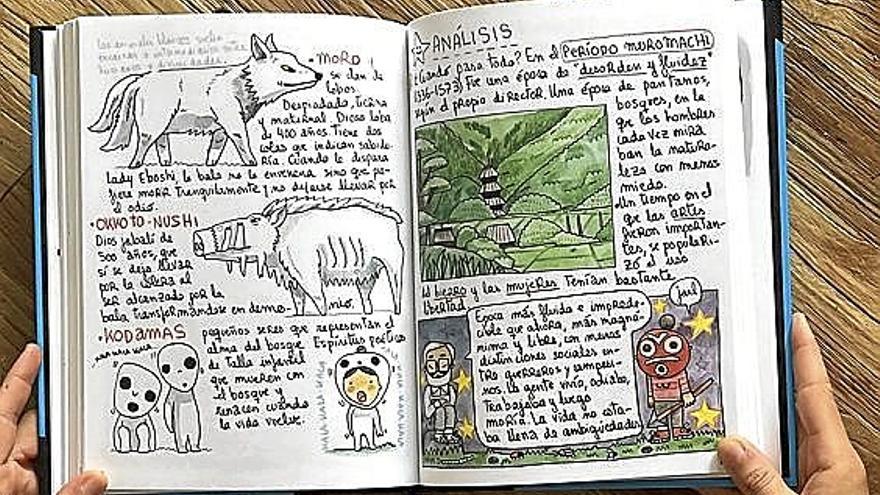 Los animales blancos suelen
MORO
se clan de
lobos.
Despiadado, tierna
y maternal. Diosa loba
de 400 años. Tiene dos
colas que indican sabidu-
ría. Cuando le dispara
Lady Eboshi, la bala no la envenena sino que pre-
fiere morir tranquilamente y no dejarse llevar por
el odio.
OKKOTO-NUSHI
Dios jabalí de
500 años, que
sí se deja llevar
por la cólera al
ser alcanzado por la
bala transformándose en demo-
nio.
KODAMAS
pequeños seres que representan el
alma del bosque
de talla infantil
que mueren con
el bosque y
renacen cuando
la vida vuelve.
Espíritus poéticos
ANÁLISIS
¿Cuándo pasa todo? En el PERÍODO MUROMACHI
1336-1573) Fue una época de "desorden y fluidez"
según el propio director. Una época de pantanos,
bosques, en la
que los hombres
cada vez mira
ban la natura-
leza con menos
miedo.
Un tiempo en el
que las artes
fueron importan-
tes, se populari-
zó el uso
del hierro y las mujeres tenían bastante
libertad.
Época más fluida e imprede-
cible que ahora, más magná-
nima y libre, con menos
distinciones sociales en-
tre guerreros y campesi-
nos. La gente vivía, odiaba,
trabajaba y luego
moría. La vida no esta-
ba llena de ambigüedades